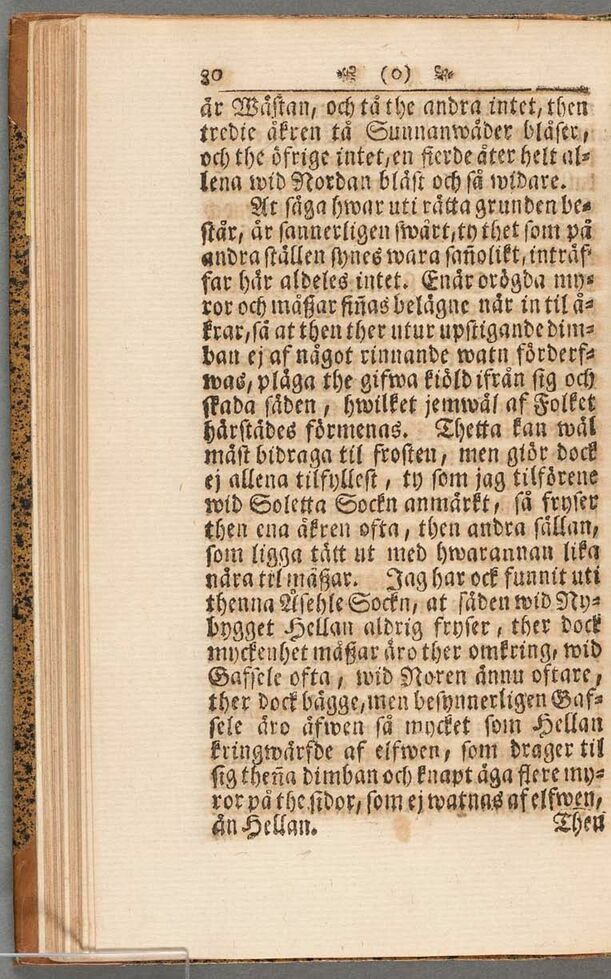 30 (0)
är Wästan, och tå the andra intet, then
tredie åkren tå Sunnanwäder bläser,
och the öfrige intet, en fierde åter helt al-
lena wid Nordan bläst och så widare.
At säga hwar uti rätta grunden be-
står, är sannerligen swårt, ty thet som på
andra ställen synes wara sañolikt, inträf-
far här aldeles intet. Enär orögda my-
ror och mäßar fiñas belägne när in til å-
krar, så at then ther utur upstigande dim-
ban ej af något rinnande watn förderf-
was, pläga the gifwa kiöld ifrån sig och
skada säden, hwilket jemwäl af Folket
härstädes förmenas. Thetta kan wäl
mäst bidraga til frosten, men giör dock
ej allena tilfyllest, ty som jag tilförene
wid Soletta Sockn anmärkt, så fryser
then ena åkren ofta, then andra sällan,
som ligga tätt ut med hwarannan lika
nära til mäßar. Jag har ock funnit uti
thenna Äsehle Sockn, at säden wid Ny-
bygget Hellan aldrig fryser, ther dock
myckenhet mäßar äro ther omkring, wid
Gafsele ofta, wid Noren ännu oftare,
ther dock bägge, men besynnerligen Gaf-
sele äro äfwen så mycket som Hellan
kringwärfde af elfwen, som drager til
sig theña dimban och knapt äga flere my-
ror på the sidor, som ej watnas af elfwen,
än Hellan. Then